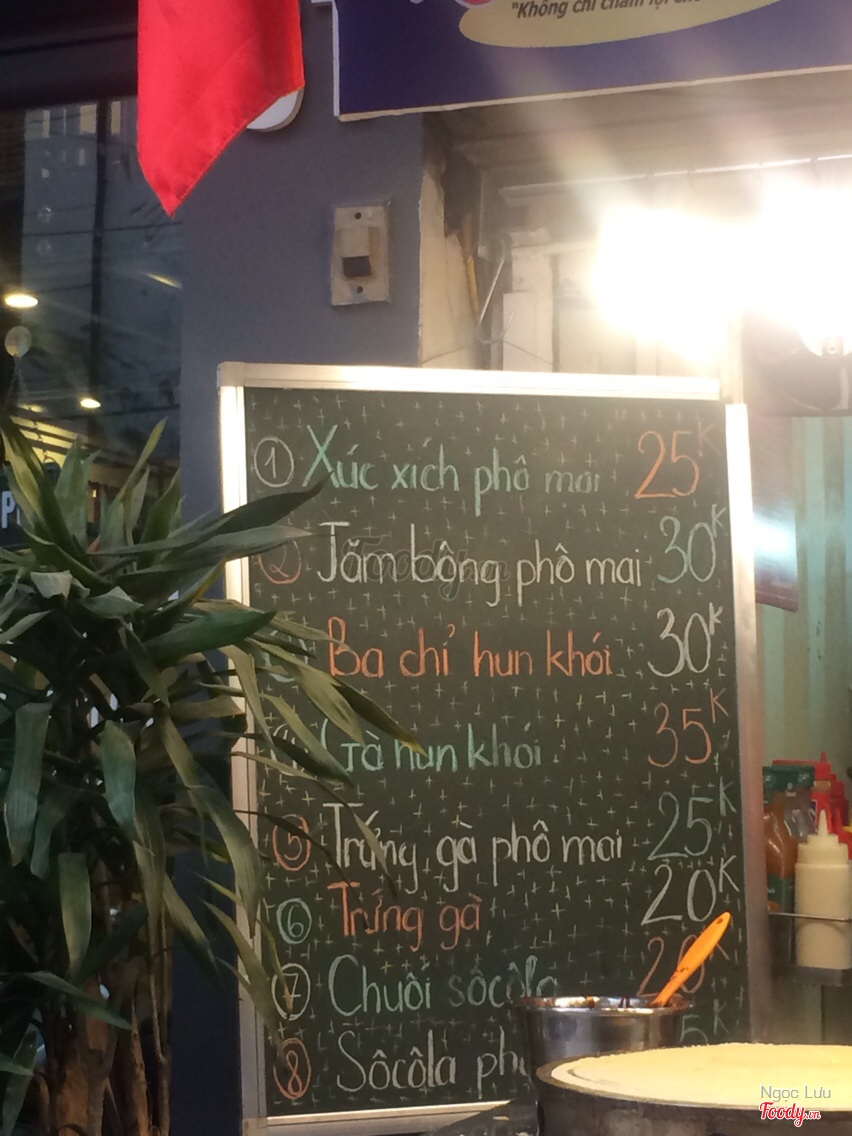 "Không chỉ chấm
① Xúc xích phô mai 25K
② Jăm bông phô mai 30K
Ba chỉ hun khói 30K
Gà hun khói 35K
⑤ Trứng gà phô mai 25K
⑥ Trứng gà 20K
⑦ Chuối sôcôla 20K
⑧ Sôcôla
Foody.vn
Ngọc Lưu
Foody.vn